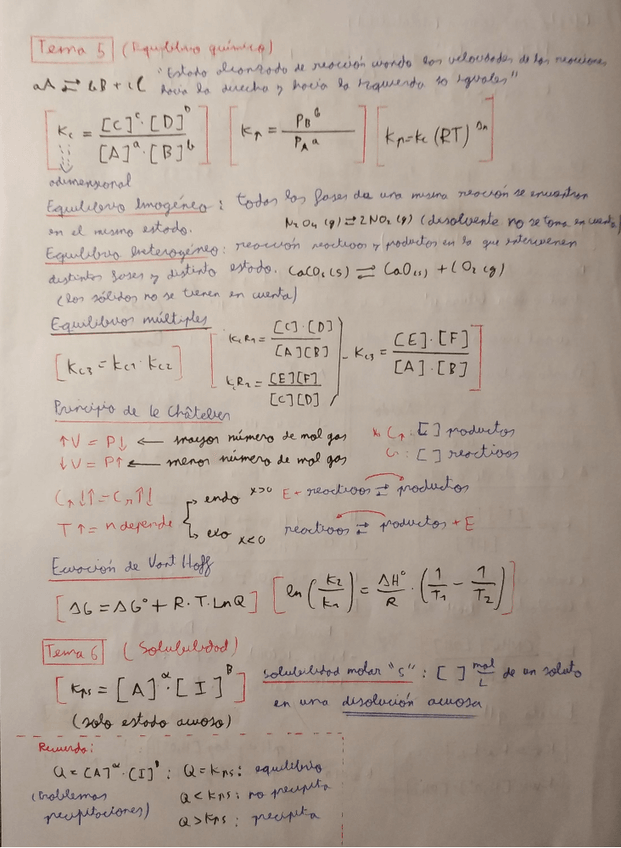 Tema 5 (Equilibrio químico)
"Estado alcanzado de reacción cuando las velocidades de las reacciones
aA ⇄ bB + cC hacia la derecha y hacia la izquierda so iguales"
[Kc = [C]^c · [D]^D / [A]^a · [B]^b] [Kp = P_B^b / P_A^a] [Kp = Kc (RT)^Δn]
adimensional
Equilibrio Imogéneo: todas las fases de una misma reacción se encuentran
en el mismo estado. N₂O₄ (g) ⇄ 2NO₂ (g) (disolvente no se toma en cuenta)
Equilibrio heterogéneo: reacción reactivos y productos en la que intervienen
distintas fases y distinto estado. CaCO₃ (s) ⇄ CaO (s) + CO₂ (g)
(los sólidos no se tienen en cuenta)
Equilibrios múltiples
[Kc3 = Kc1 · Kc2] [KcR1 = [C]·[D] / [A][B] KcR2 = [E][F] / [C][D] - Kc3 = [E]·[F] / [A]·[B]]
Principio de le Châtelier
↑V = P↓ ← mayor número de mol gas Cp: [ ] productos
↓V = P↑ ← menor número de mol gas Cr: [ ] reactivos
Cp ↓↑ = Cr ↑↓ → endo x>0 E + reactivos ⇄ productos
T ↑ = n depende → exo x<0 reactivos ⇄ productos + E
Ecuación de Vant Hoff
[ΔG = ΔG° + R·T·LnQ] [ln (K2 / K1) = ΔH° / R · (1/T1 - 1/T2)]
Tema 6 (Solubilidad)
[Kps = [A]^α · [I]^B] solubilidad molar "s": [ ] mol/L de un soluto
(solo estado acuoso) en una disolución acuosa
Recuerda:
Q = [A]^α · [I]^B : Q = Kps: equilibrio
(Problemas Q < Kps: no precipita
precipitaciones) Q > Kps: precipita